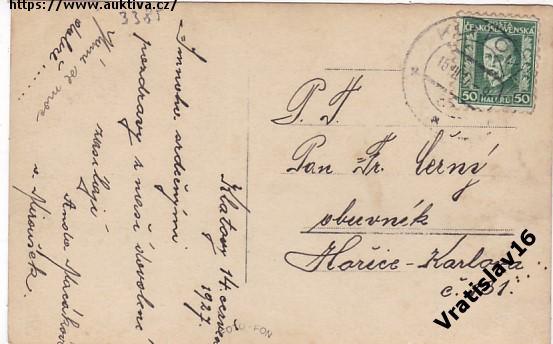 https://www.auktiva.cz/
3385
S mnoha srdečnými
pozdravy z naší dovolené
zasílají
Anda Macáková
a Miroušek.
Klatovy 14. červen
1927.
POŠTA
ČESKOSLOVENSKÁ
50 HALÉŘŮ 50
P. T.
Pan Fr. Černý
obuvník
Hořice-Karlova
č. 31.
FOTO-FON
Vratislav16